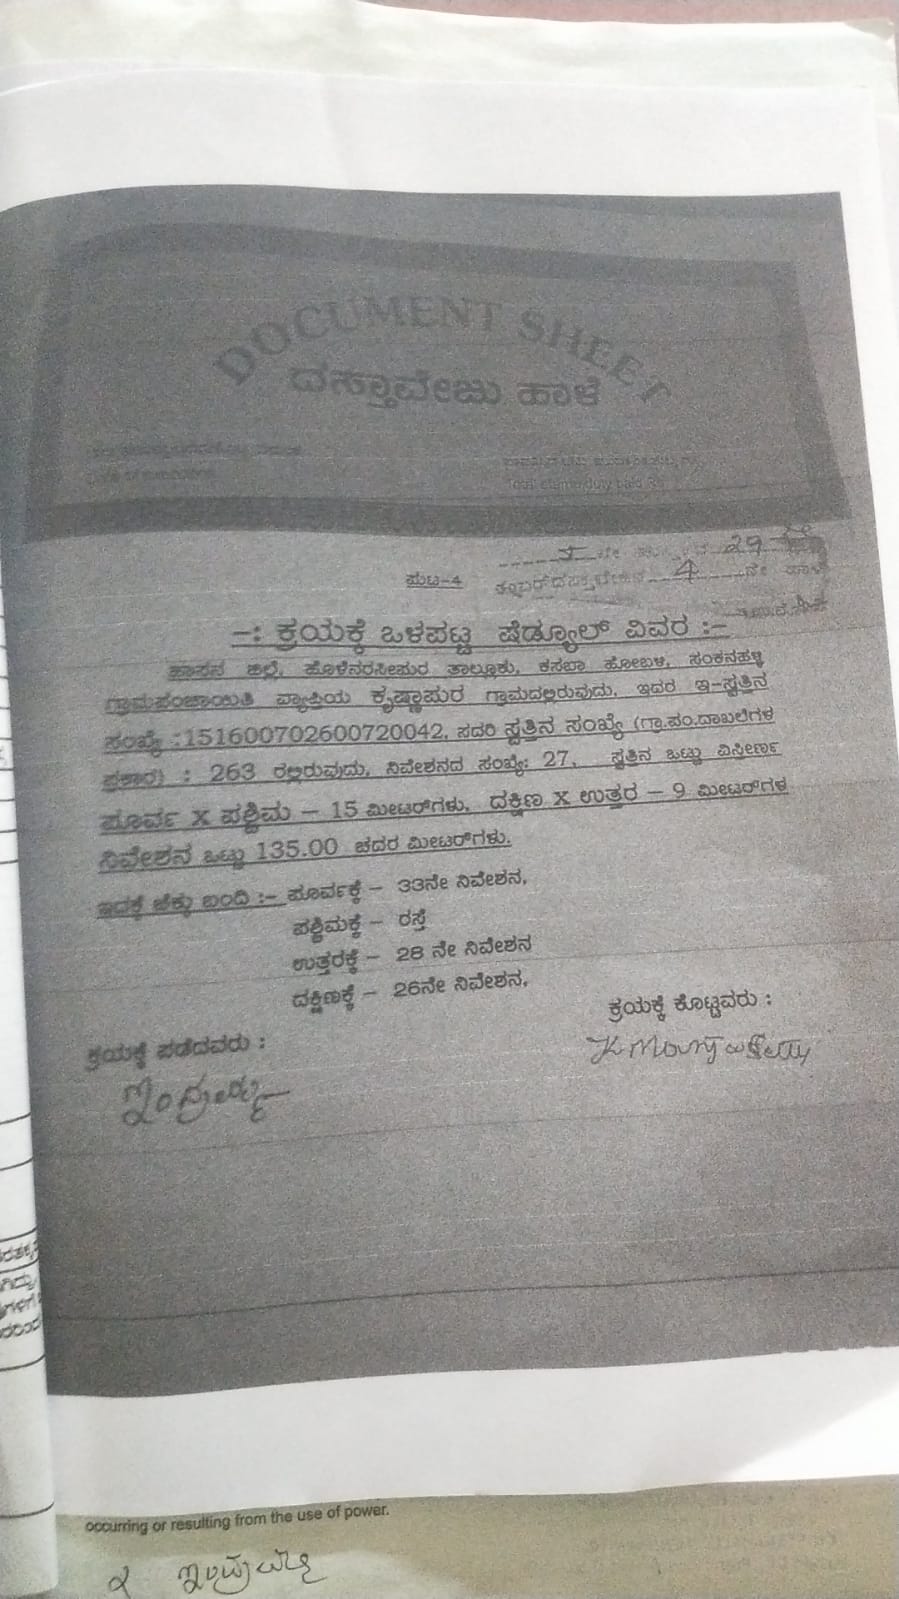 DOCUMENT SHEET
ದಸ್ತಾವೇಜು ಹಾಳೆ
Total stamp duty paid Rs.
29
4 ನೇ
ಪುಟ-4
-: ಕ್ರಯಕ್ಕೆ ಒಳಪಟ್ಟ ಷೆಡ್ಯೂಲ್ ವಿವರ :-
ಹಾಸನ ಜಿಲ್ಲೆ, ಹೊಳೆನರಸೀಪುರ ತಾಲ್ಲೂಕು, ಕಸಬಾ ಹೋಬಳಿ, ಸಂಕನಹಳ್ಳಿ
ಗ್ರಾಮಪಂಚಾಯಿತಿ ವ್ಯಾಪ್ತಿಯ ಕೃಷ್ಣಾಪುರ ಗ್ರಾಮದಲ್ಲಿರುವುದು, ಇದರ ಇ-ಸ್ವತ್ತಿನ
ಸಂಖ್ಯೆ :151600702600720042, ಸದರಿ ಸ್ವತ್ತಿನ ಸಂಖ್ಯೆ (ಗ್ರಾ.ಪಂ.ದಾಖಲೆಗಳ
ಪ್ರಕಾರ) : 263 ರಲ್ಲಿರುವುದು, ನಿವೇಶನದ ಸಂಖ್ಯೆ: 27, ಸ್ವತ್ತಿನ ಒಟ್ಟು ವಿಸ್ತೀರ್ಣ
ಪೂರ್ವ X ಪಶ್ಚಿಮ – 15 ಮೀಟರ್‌ಗಳು, ದಕ್ಷಿಣ X ಉತ್ತರ – 9 ಮೀಟರ್‌ಗಳ
ನಿವೇಶನ ಒಟ್ಟು 135.00 ಚದರ ಮೀಟರ್‌ಗಳು.
ಇದಕ್ಕೆ ಚೆಕ್ಕು ಬಂದಿ :- ಪೂರ್ವಕ್ಕೆ – 33ನೇ ನಿವೇಶನ,
ಪಶ್ಚಿಮಕ್ಕೆ – ರಸ್ತೆ
ಉತ್ತರಕ್ಕೆ – 28 ನೇ ನಿವೇಶನ
ದಕ್ಷಿಣಕ್ಕೆ – 26ನೇ ನಿವೇಶನ,
ಕ್ರಯಕ್ಕೆ ಕೊಟ್ಟವರು :
ಕ್ರಯಕ್ಕೆ ಪಡೆದವರು :
occurring or resulting from the use of power.